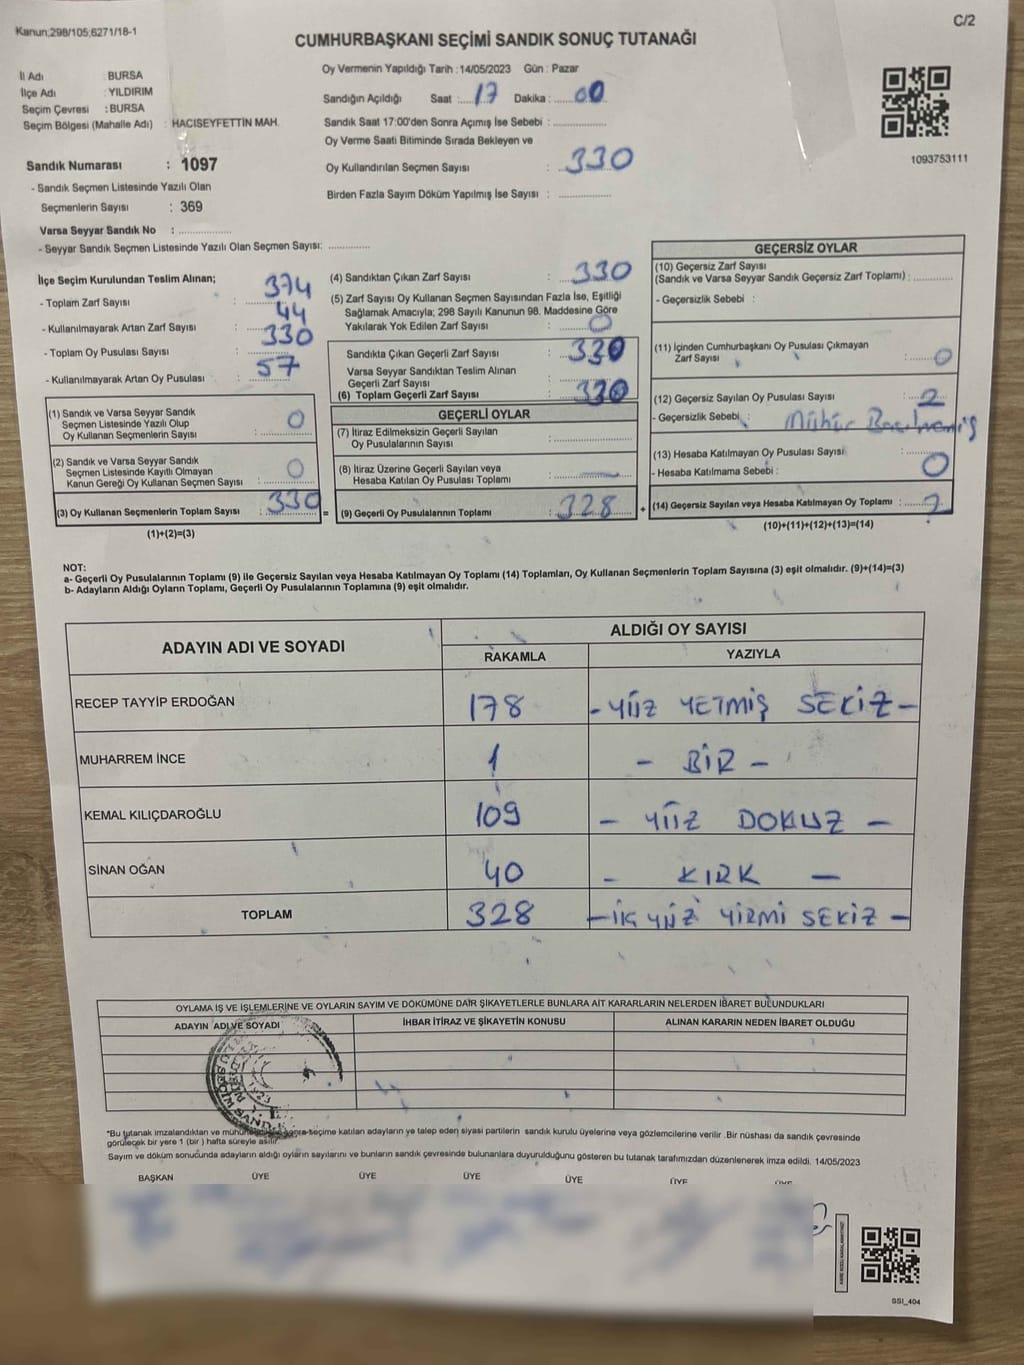 Kanun;298/105;6271/18-1
C/2
CUMHURBAŞKANI SEÇİMİ SANDIK SONUÇ TUTANAĞI
İl Adı : BURSA
İlçe Adı : YILDIRIM
Seçim Çevresi : BURSA
Seçim Bölgesi (Mahalle Adı) : HACISEYFETTİN MAH.
Sandık Numarası : 1097
- Sandık Seçmen Listesinde Yazılı Olan
Seçmenlerin Sayısı : 369
Varsa Seyyar Sandık No :
- Seyyar Sandık Seçmen Listesinde Yazılı Olan Seçmen Sayısı:
Oy Vermenin Yapıldığı Tarih : 14/05/2023 Gün : Pazar
Sandığın Açıldığı Saat : 17 Dakika : 00
Sandık Saat 17:00'den Sonra Açımış İse Sebebi :
Oy Verme Saati Bitiminde Sırada Bekleyen ve
Oy Kullandırılan Seçmen Sayısı : 330
Birden Fazla Sayım Döküm Yapılmış İse Sayısı :
1093753111
İlçe Seçim Kurulundan Teslim Alınan;
- Toplam Zarf Sayısı : 374
- Kullanılmayarak Artan Zarf Sayısı : 44
- Toplam Oy Pusulası Sayısı : 330
- Kullanılmayarak Artan Oy Pusulası : 57
(1) Sandık ve Varsa Seyyar Sandık
Seçmen Listesinde Yazılı Olup
Oy Kullanan Seçmenlerin Sayısı : 0
(2) Sandık ve Varsa Seyyar Sandık
Seçmen Listesinde Kayıtlı Olmayan
Kanun Gereği Oy Kullanan Seçmen Sayısı : 0
(3) Oy Kullanan Seçmenlerin Toplam Sayısı : 330 =
(1)+(2)=(3)
(4) Sandıktan Çıkan Zarf Sayısı : 330
(5) Zarf Sayısı Oy Kullanan Seçmen Sayısından Fazla İse, Eşitliği
Sağlamak Amacıyla; 298 Sayılı Kanunun 98. Maddesine Göre
Yakılarak Yok Edilen Zarf Sayısı : 0
Sandıkta Çıkan Geçerli Zarf Sayısı : 330
Varsa Seyyar Sandıktan Teslim Alınan
Geçerli Zarf Sayısı :
(6) Toplam Geçerli Zarf Sayısı : 330
GEÇERLİ OYLAR
(7) İtiraz Edilmeksizin Geçerli Sayılan
Oy Pusulalarının Sayısı :
(8) İtiraz Üzerine Geçerli Sayılan veya
Hesaba Katılan Oy Pusulası Toplamı :
(9) Geçerli Oy Pusulalarının Toplamı : 328 +
GEÇERSİZ OYLAR
(10) Geçersiz Zarf Sayısı
(Sandık ve Varsa Seyyar Sandık Geçersiz Zarf Toplamı) :
- Geçersizlik Sebebi :
(11) İçinden Cumhurbaşkanı Oy Pusulası Çıkmayan
Zarf Sayısı : 0
(12) Geçersiz Sayılan Oy Pusulası Sayısı : 2
- Geçersizlik Sebebi : Mühür Basılmamış
(13) Hesaba Katılmayan Oy Pusulası Sayısı : 0
- Hesaba Katılmama Sebebi :
(14) Geçersiz Sayılan veya Hesaba Katılmayan Oy Toplamı : 2
(10)+(11)+(12)+(13)=(14)
NOT:
a- Geçerli Oy Pusulalarının Toplamı (9) ile Geçersiz Sayılan veya Hesaba Katılmayan Oy Toplamı (14) Toplamları, Oy Kullanan Seçmenlerin Toplam Sayısına (3) eşit olmalıdır. (9)+(14)=(3)
b- Adayların Aldığı Oyların Toplamı, Geçerli Oy Pusulalarının Toplamına (9) eşit olmalıdır.
ADAYIN ADI VE SOYADI
ALDIĞI OY SAYISI
RAKAMLA YAZIYLA
RECEP TAYYİP ERDOĞAN 178 - YÜZ YETMİŞ SEKİZ -
MUHARREM İNCE 1 - BİR -
KEMAL KILIÇDAROĞLU 109 - YÜZ DOKUZ -
SİNAN OĞAN 40 - KIRK -
TOPLAM 328 YÜZ YİRMİ SEKİZ -
OYLAMA İŞ VE İŞLEMLERİNE VE OYLARIN SAYIM VE DÖKÜMÜNE DAİR ŞİKAYETLERLE BUNLARA AİT KARARLARIN NELERDEN İBARET BULUNDUKLARI
ADAYIN ADI VE SOYADI İHBAR İTİRAZ VE ŞİKAYETİN KONUSU ALINAN KARARIN NEDEN İBARET OLDUĞU
1923
*Bu tutanak imzalandıktan ve seçime katılan adayların ve talep eden siyasi partilerin sandık kurulu üyelerine veya gözlemcilerine verilir .Bir nüshası da sandık çevresinde
görülecek bir yere 1 (bir ) hafta süreyle asılır.
Sayım ve döküm sonucunda adayların aldığı oyların sayılarını ve bunların sandık çevresinde bulunanlara duyurulduğunu gösteren bu tutanak tarafımızdan düzenlenerek imza edildi. 14/05/2023
BAŞKAN ÜYE ÜYE ÜYE ÜYE ÜYE
SSI_404